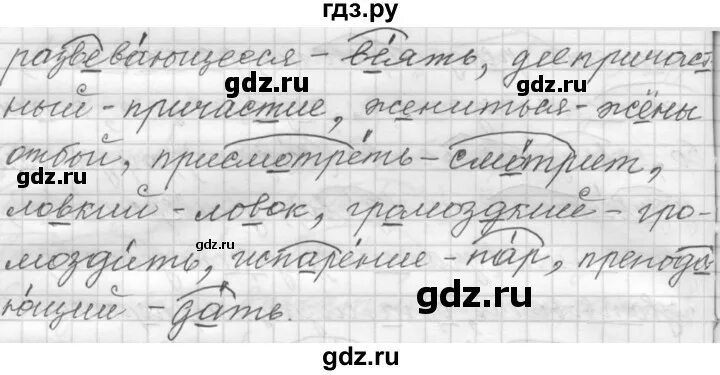 гдз.ру
развевающееся - веять, деепричаст-
ный - причастие, жениться - жёны
отбой, присмотреть - смотрит,
ловкий - ловок, громоздкий - гро-
моздить, испарение - пар, препода-
ющий - дать.
gdz.ru
gdz.ru
gdz.ru
gdz.ru
gdz.ru
gdz.ru